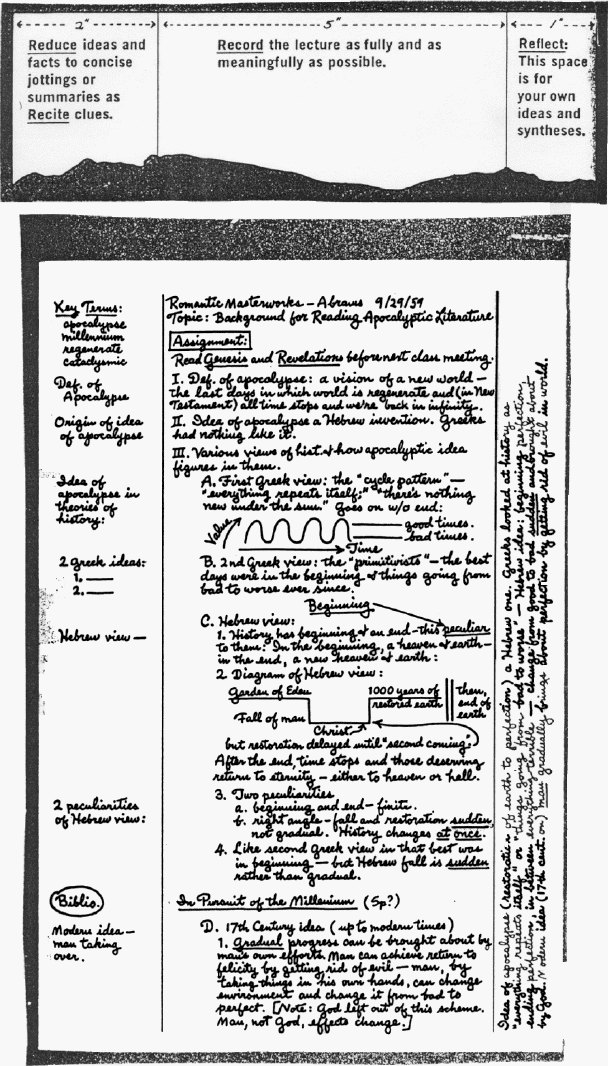 2"
5"
1"
Reduce ideas and
facts to concise
jottings or
summaries as
Recite clues.
Record the lecture as fully and as
meaningfully as possible.
Reflect:
This space
is for
your own
ideas and
syntheses.
Key Terms:
apocalypse
millennium
regenerate
cataclysmic
Def. of
Apocalypse
Origin of idea
of apocalypse
Idea of
apocalypse in
theories of
history:
2 greek ideas:
1. ——
2. ——
Hebrew view —
2 peculiarities
of Hebrew view:
Biblio.
Modern idea —
man taking
over.
Romantic Masterworks — Abrams 9/29/59
Topic: Background for Reading Apocalyptic Literature
Assignment:
Read Genesis and Revelations before next class meeting.
I. Def. of apocalypse: a vision of a new world —
the last days in which world is regenerate and (in New
Testament) all time stops and we're back in infinity.
II. Idea of apocalypse a Hebrew invention. Greeks
had nothing like it.
III. Various views of hist. & how apocalyptic idea
figures in them.
A. First Greek view: the "cycle pattern" —
"everything repeats itself;" "there's nothing
new under the sun." Goes on w/o end:
Value
good times.
bad times.
Time
B. 2nd Greek view: the "primitivists" — the best
days were in the beginning & things going from
bad to worse ever since:
Beginning
C. Hebrew view:
1. History has beginning & an end — this peculiar
to them: In the beginning, a heaven & earth —
in the end, a new heaven & earth:
2 Diagram of Hebrew view:
Garden of Eden
1000 years of
restored earth
then,
end of
earth
Fall of man
Christ
but restoration delayed until "second coming."
After the end, time stops and those deserving
return to eternity — either to heaven or hell.
3. Two peculiarities
a. beginning and end — finite.
b. right angle — fall and restoration sudden,
not gradual. History changes at once.
4. Like second Greek view in that best was
in beginning — but Hebrew fall is sudden
rather than gradual.
In Pursuit of the Millenium (Sp?)
D. 17th Century idea (up to modern times)
1. Gradual progress can be brought about by
man's own efforts. Man can achieve return to
felicity by getting rid of evil — man, by
taking things in his own hands, can change
environment and change it from bad to
perfect. [Note: God left out of this scheme.
Man, not God, effects change.]
Idea of apocalypse (restoration of earth to perfection) a Hebrew one. Greeks looked at history as
"everything repeats itself" or "things going from bad to worse" — Hebrew idea: beginning perfection —
ending perfection, in between everything terrible — change from good to bad sudden and brought about
by God. Modern idea (17th cent. on) man gradually brings about perfection by getting rid of evil in world.